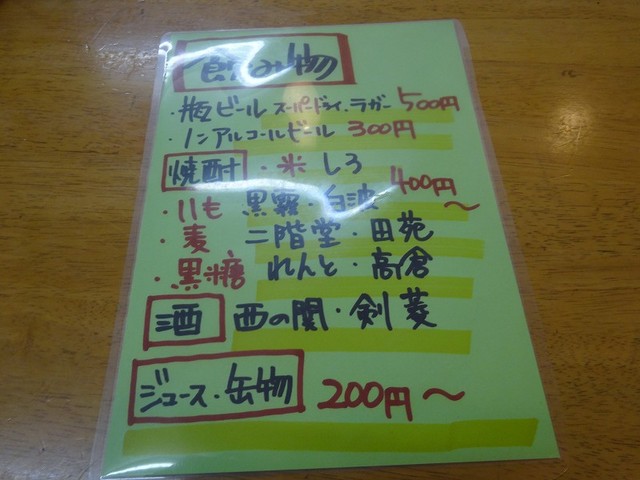 飲み物
・瓶ビール スーパードライ・ラガー 500円
・ノンアルコールビール 300円
焼酎 ・米 しろ
400円～
・いも 黒霧・白波
・麦 二階堂・田苑
・黒糖 れんと・高倉
酒 西の関・剣菱
ジュース・缶物 200円～